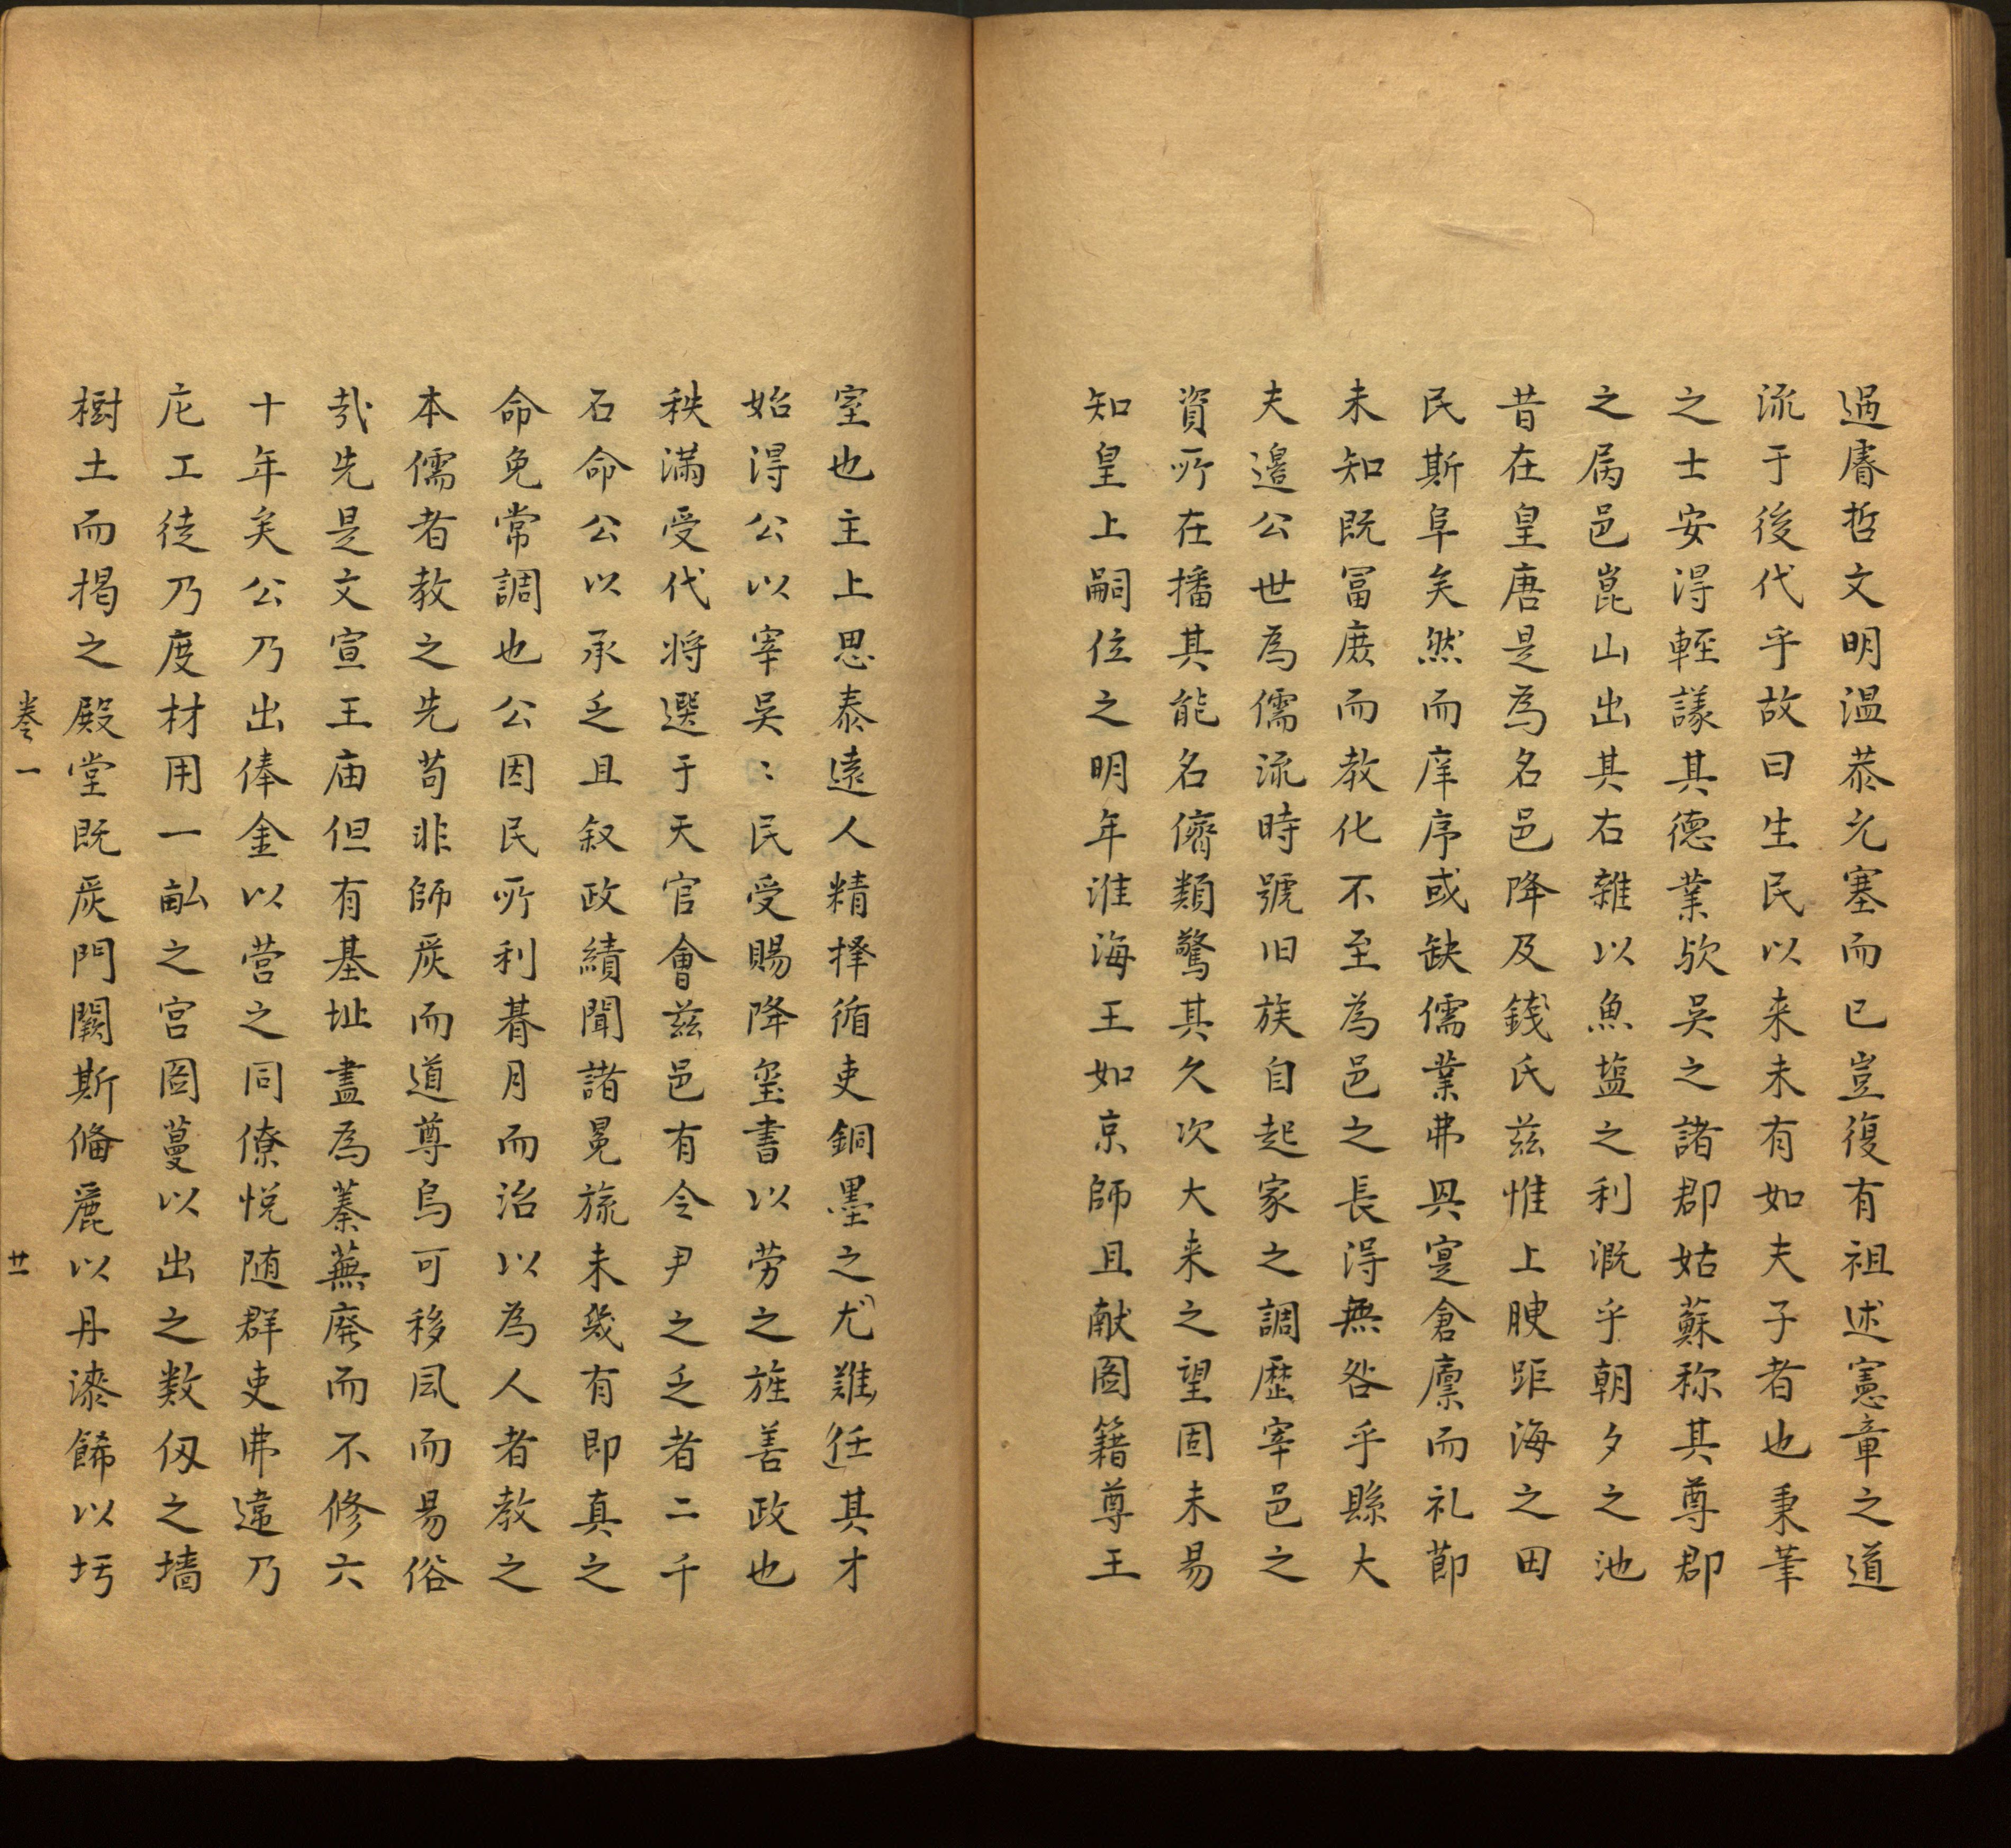 過睿哲文明温恭允塞而已豈復有祖述憲章之道
流于後代乎故曰生民以来未有如夫子者也秉筆
之士安得輕議其德業欤吳之諸郡姑蘇称其尊郡
之属邑崑山出其右雜以魚塩之利溉乎朝夕之池
昔在皇唐是為名邑降及錢氏兹惟上腴距海之田
民斯阜矣然而庠序或缺儒業弗興寔倉廪而礼節
未知既冨庶而教化不至為邑之長得無咎乎縣大
夫邉公世為儒流時號旧族自起家之調歷宰邑之
資所在播其能名儕類驚其久次大来之望固未易
知皇上嗣位之明年淮海王如京師且献圖籍尊王
室也主上思泰遠人精择循吏銅墨之尤難任其才
始得公以宰吳〻民受賜降璽書以劳之旌善政也
秩滿受代将選于天官會兹邑有令尹之乏者二千
石命公以承乏且叙政績聞諸冕旒未幾有即真之
命免常調也公因民所利朞月而治以為人者教之
本儒者教之先茍非師嚴而道尊烏可移風而易俗
㢤先是文宣王庙但有基址盡為蓁蕪廢而不修六
十年矣公乃出俸金以营之同僚悦随群吏弗違乃
庀工徒乃度材用一畝之宫圖蔓以出之数仭之墻
樹土而揭之殿堂既嚴門闕斯俻麗以丹漆餙以圬
卷一 廿一